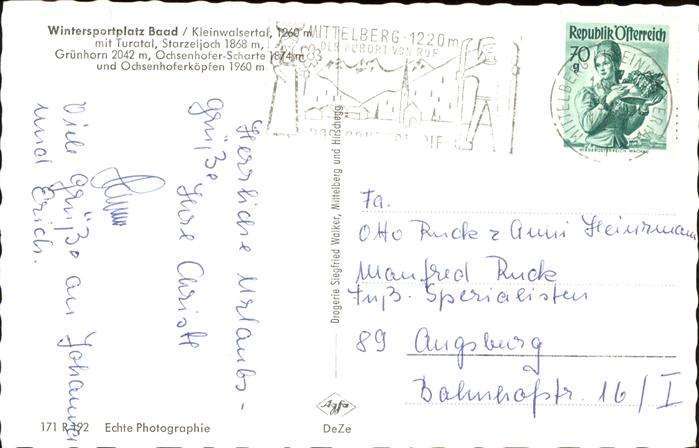 Wintersportplatz Baad / Kleinwalsertal, 1260 m
mit Turatal, Starzeljoch 1868 m,
Grünhorn 2042 m, Ochsenhofer-Scharte 1874 m
und Ochsenhoferköpfen 1960 m
MITTELBERG · 1220 m
DER KURORT VON RUF
Republik Österreich
70 g
Herrliche Urlaubs-
grüße Ihre Christl
Viele Grüße an Johannes
und Erich.
Drogerie Siegfried Walker, Mittelberg und Hirschegg
Fa.
Otto Ruck z Anni Heinzmann
Manfred Ruck
Fuß. Spezialisten
89 Augsburg
Bahnhofstr. 16/I
171 R 192 Echte Photographie
DeZe